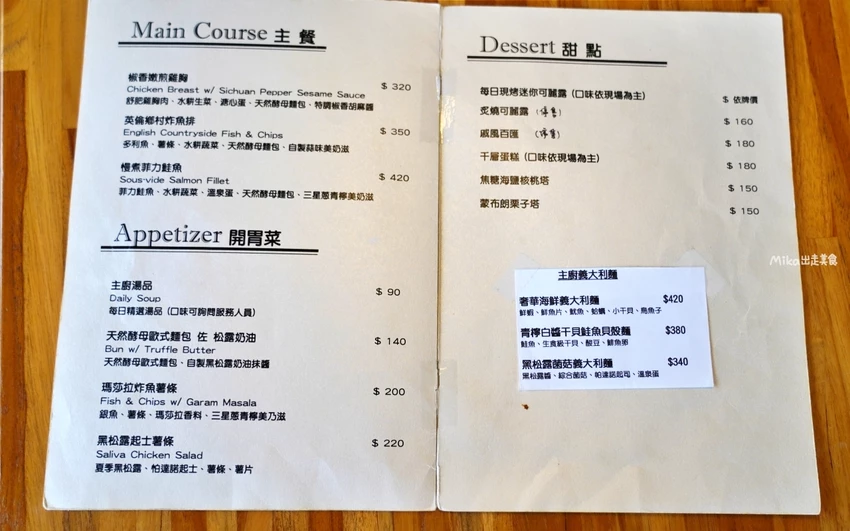 Main Course 主 餐
椒香嫩煎雞胸
Chicken Breast w/ Sichuan Pepper Sesame Sauce $ 320
舒肥雞胸肉、水耕生菜、溏心蛋、天然酵母麵包、特調椒香胡麻醬
英倫鄉村炸魚排
English Countryside Fish & Chips $ 350
多利魚、薯條、水耕蔬菜、天然酵母麵包、自製蒜味美奶滋
慢煮菲力鮭魚
Sous-vide Salmon Fillet $ 420
菲力鮭魚、水耕蔬菜、溫泉蛋、天然酵母麵包、三星蔥青檸美奶滋
Appetizer 開胃菜
主廚湯品
Daily Soup $ 90
每日精選湯品（口味可詢問服務人員）
天然酵母歐式麵包 佐 松露奶油
Bun w/ Truffle Butter $ 140
天然酵母歐式麵包、自製黑松露奶油抹醬
瑪莎拉炸魚薯條
Fish & Chips w/ Garam Masala $ 200
銀魚、薯條、瑪莎拉香料、三星蔥青檸美乃滋
黑松露起士薯條
Saliva Chicken Salad $ 220
夏季黑松露、帕達諾起士、薯條、薯片
Dessert 甜 點
每日現烤迷你可麗露（口味依現場為主） $ 依牌價
炙燒可麗露 (停售) $ 160
戚風百匯 (停售) $ 180
千層蛋糕（口味依現場為主） $ 180
焦糖海鹽核桃塔 $ 150
蒙布朗栗子塔 $ 150
主廚義大利麵
奢華海鮮義大利麵 $420
鮮蝦、鮮魚片、魷魚、蛤蠣、小干貝、烏魚子
青檸白醬干貝鮭魚貝殼麵 $380
鮭魚、生食級干貝、酸豆、鮭魚卵
黑松露菌菇義大利麵 $340
黑松露醬、綜合菌菇、帕達諾起司、溫泉蛋
Mika出走美食